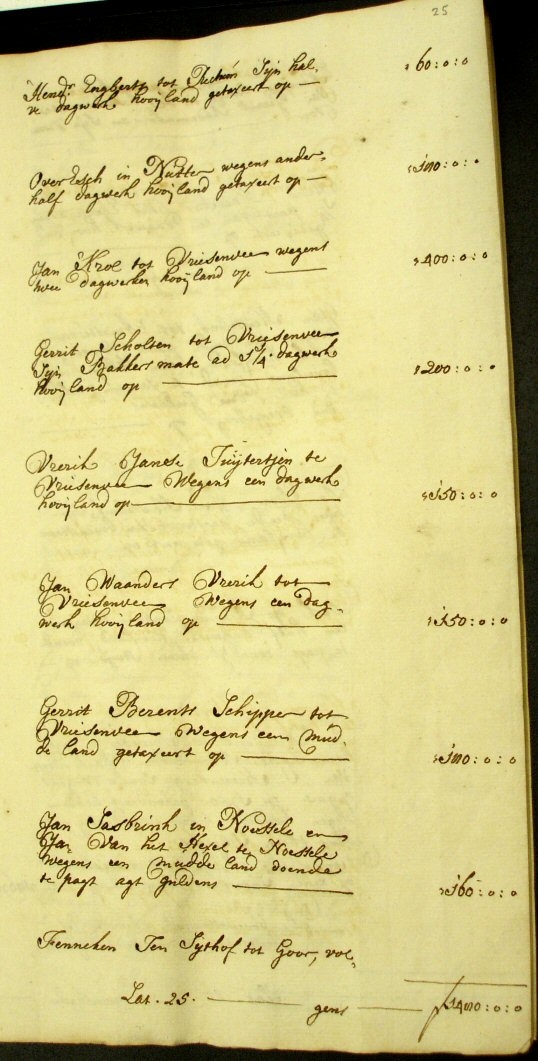 25
Hendr. Engberts tot Rectum Sijn hal-
ve dagwerk hooijland getaxeert op — 60:0:0
Over Esch in Nutter wegens ander-
half dagwerk hooijland getaxeert op — :0:0
Jan Krol tot Vriesenvee wegens
twee dagwerken hooijland op — 400:0:0
Gerrit Scholten tot Vriesenvee
Sijn Bakkers mate ad 5/4 dagwerk
hooijland op — 200:0:0
Vrerik Janse Tuijtertjen te
Vriesenvee Wegens een dagwerk
hooijland op — 150:0:0
Jan Waanders Vrerik tot
Vriesenvee Wegens een dag-
werk hooijland op — 150:0:0
Gerrit Berents Schipper tot
Vriesenvee Wegens een mud-
de land getaxeert op — :0:0
Jan Sasbrink in Noetsele en
Jan van het Hexel te Noetsele
wegens een mudde land doende
te pagt agt guldens — 160:0:0
Fenneken Ten Sijthof tot Goor, vol-
Lat. 25. — gens — f 1400:0:0